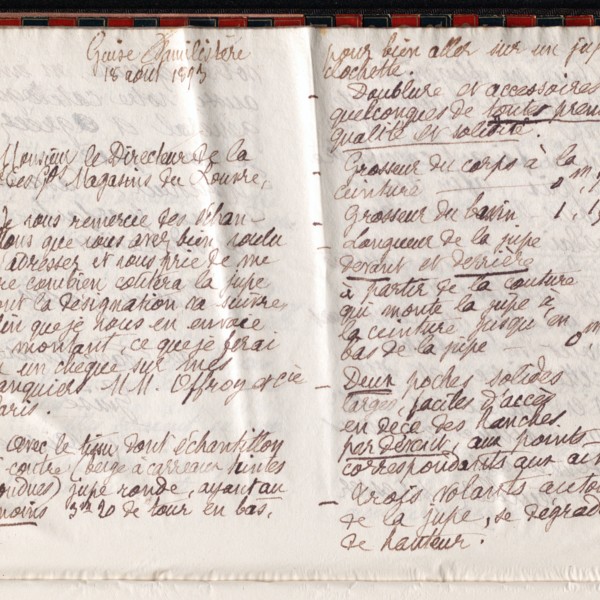 Guise Familistère
18 août 1893
Monsieur le Directeur de la
des Gds Magasins du Louvre,
Je vous remercie des échan-
llons que vous avez bien voulu
adresser et vous prie de me
re combien coûtera la jupe
ont la désignation va suivre
fin que je vous en envoie
montant, ce que je ferai
un chèque sur mes
anquiers M.M. Offroy et Cie
Paris.
avec le tissu dont échantillon
contre (beige à carreaux teintes
) jupe ronde, ayant au
moins 3m20 de tour en bas,
pour bien aller sur un jup
clochette.
Doublure et accessoires
quelconques de toutes prem
qualité et solidité.
Grosseur du corps à la
ceinture 0m,
Grosseur du bassin 1,1
Longueur de la jupe
devant et derrière
à partir de la couture
qui monte la jupe à
la ceinture jusqu'en
bas de la jupe 0m,
Deux poches solides
larges, faciles d'accès
en deçà des hanches
par devant, aux points
correspondants aux
Trois volants auto
de la jupe, se dégrad
de hauteur.